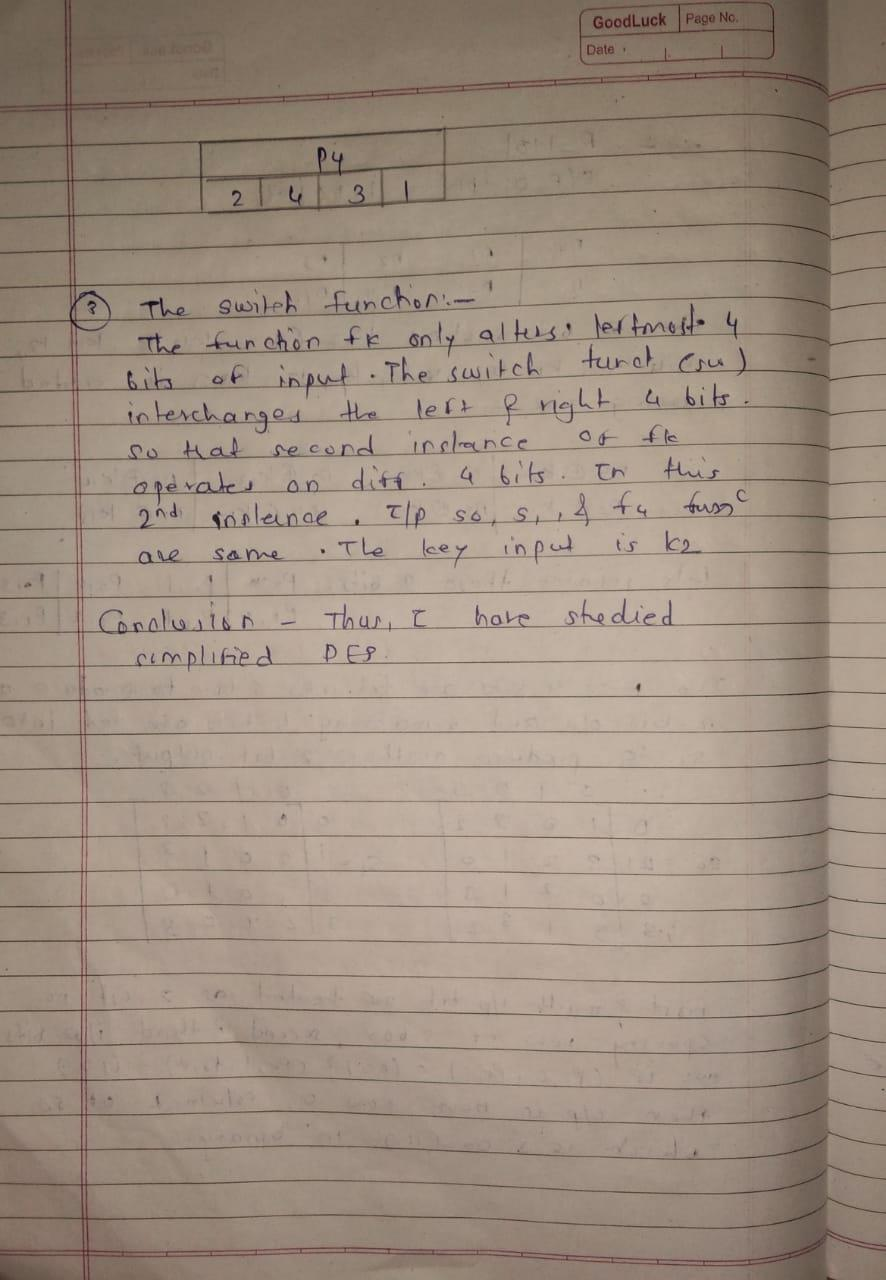 GoodLuck Page No.
Date
P4
2 4 3 1
3 The switch function:-
The function fk only alters leftmost 4
bits of input. The switch funct (sw)
interchanges the left & right 4 bits.
so that second instance of fk
operates on diff. 4 bits. In this
2nd instance. I/p s0, s1, & f4 func
are same. The key input is k2
Conclusion - Thus, I have studied
simplified DES.